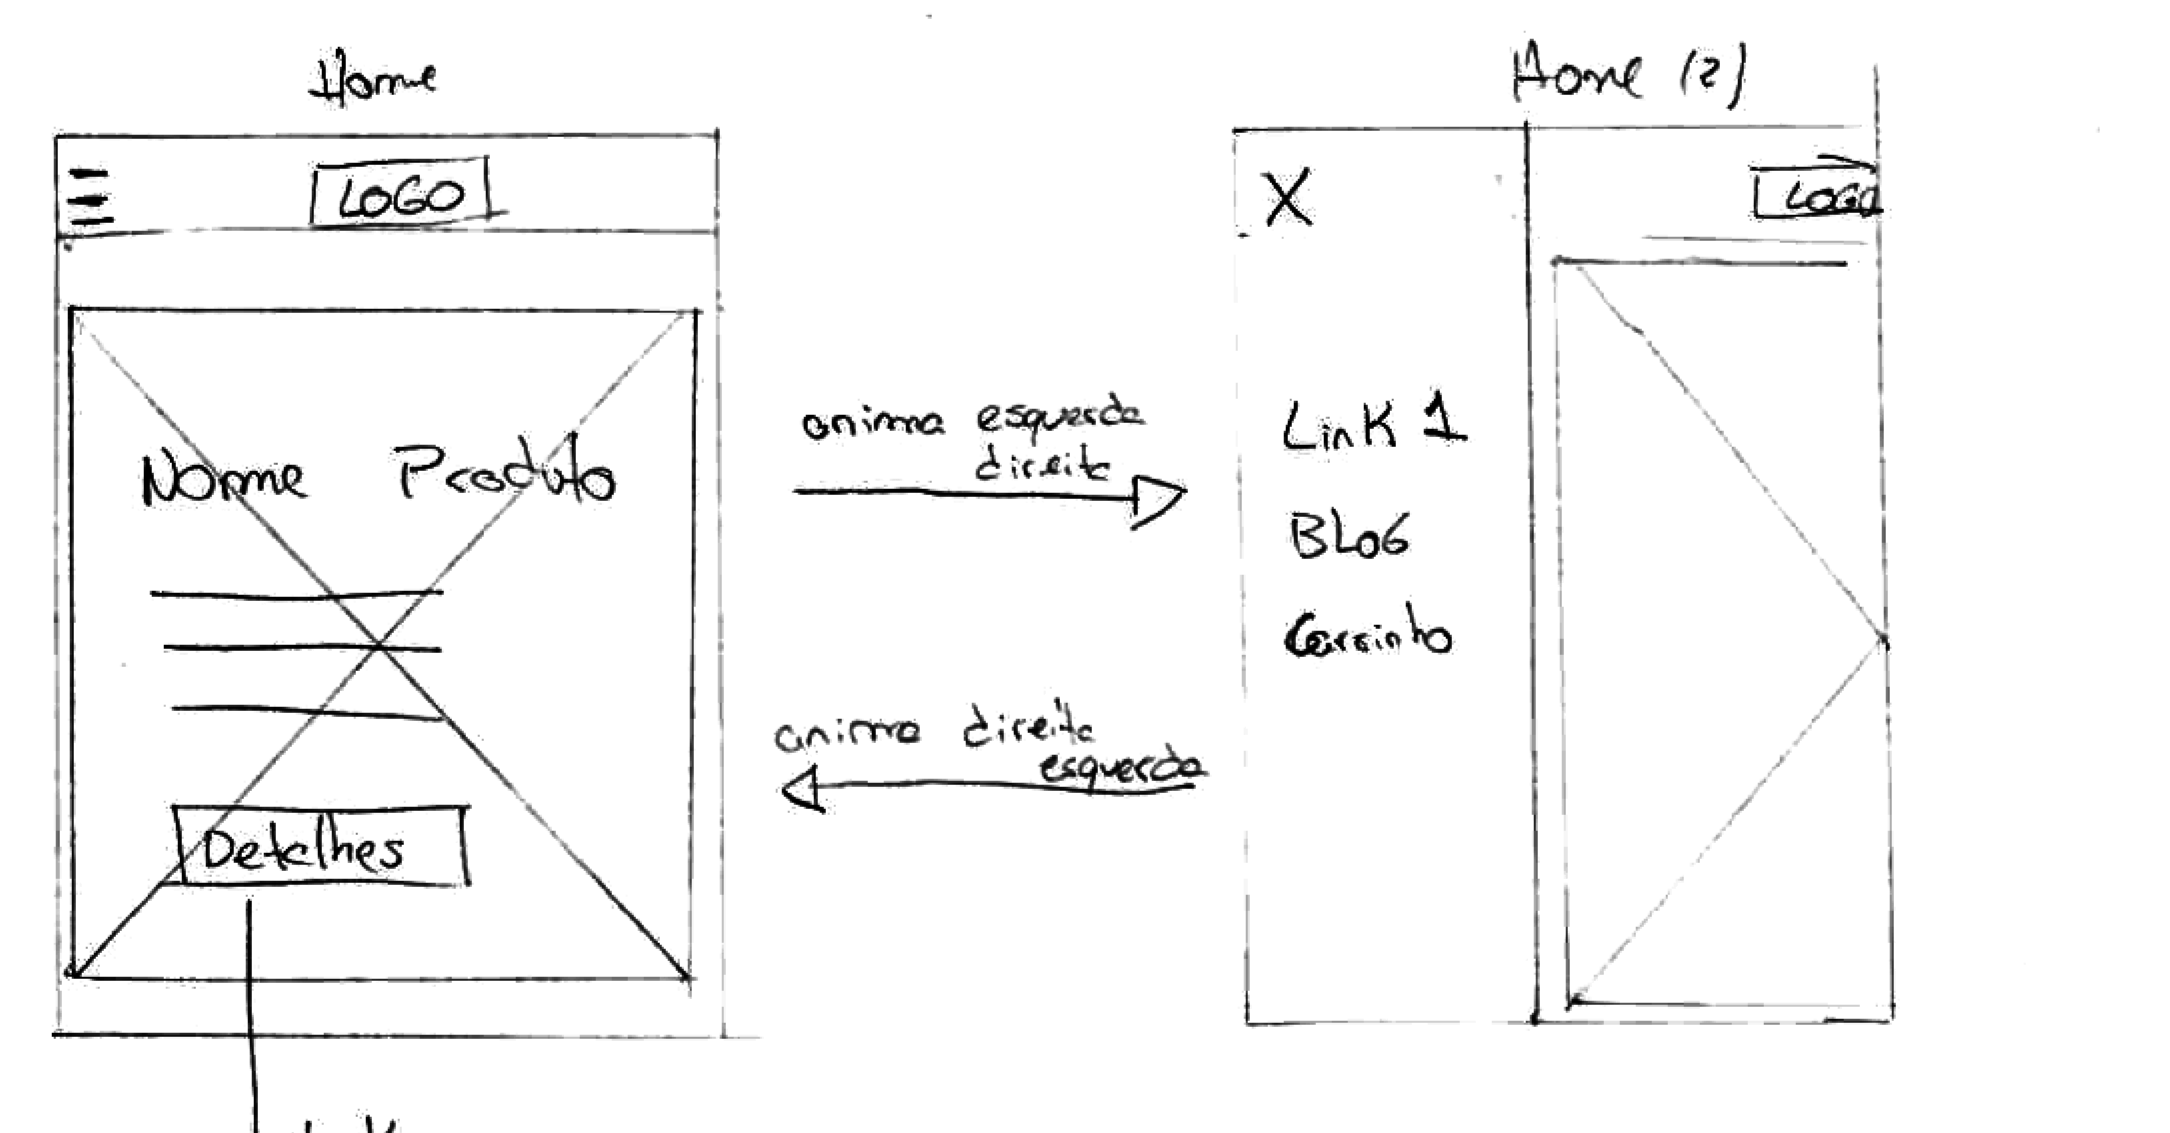 Home
LOGO
Nome Produto
Detalhes
anima esquerda
direita
anima direita
esquerda
Home (2)
X
LOGO
Link 1
BLOG
Carrinho